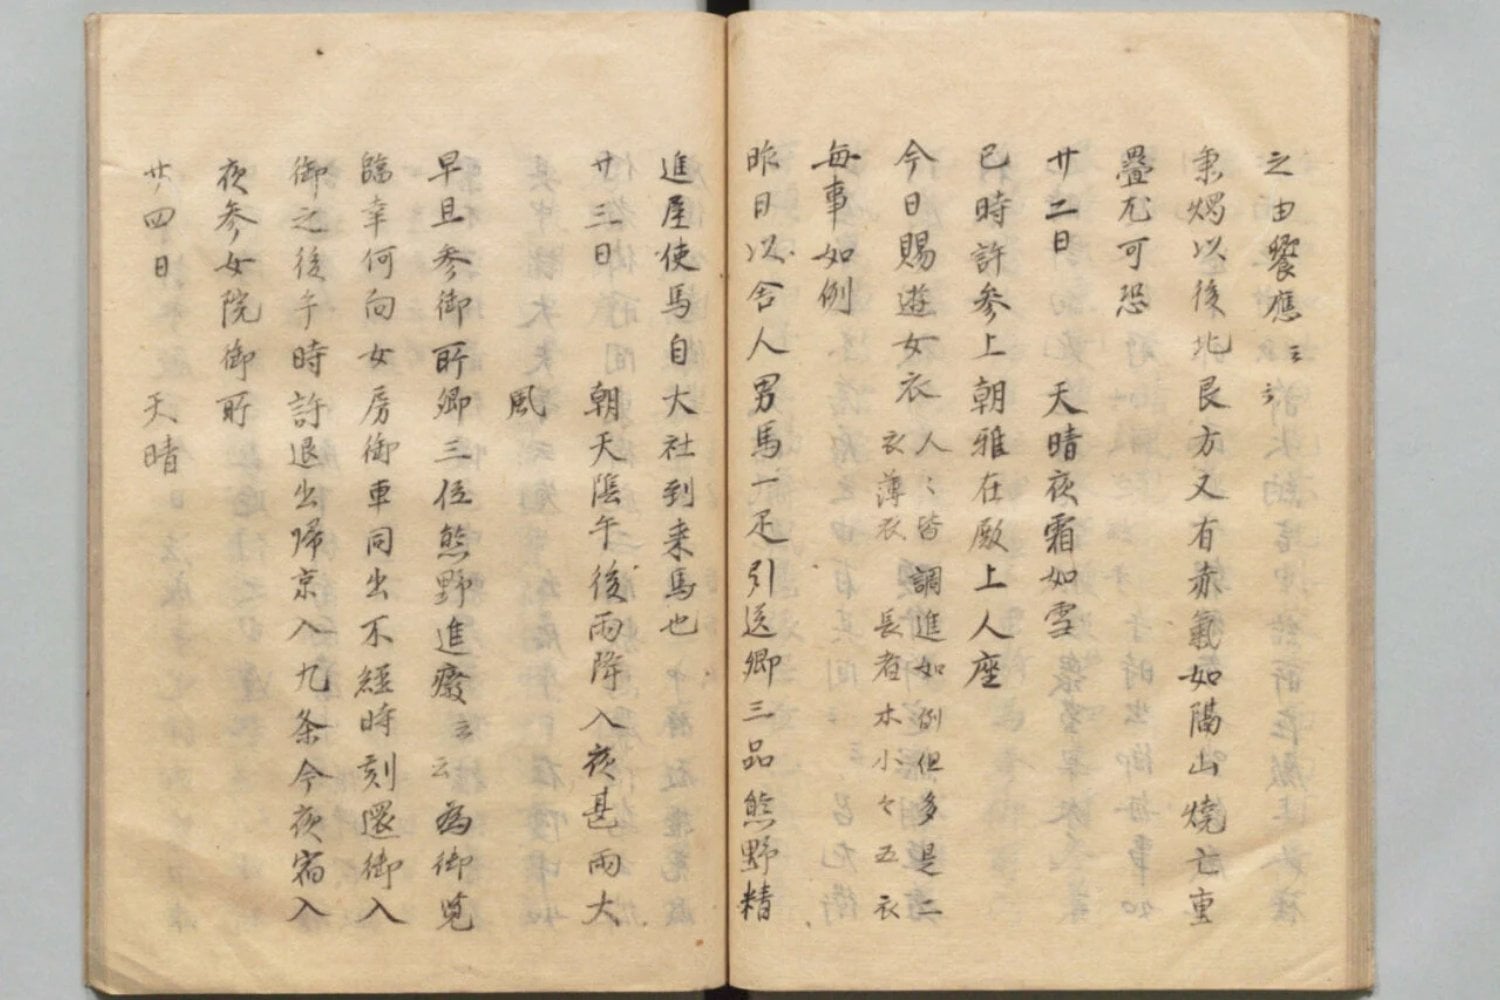 之由饗應云々
秉燭以後北艮方又有赤氣如隔山燒亡重
疊尤可恐
廿二日　天晴夜霜如雪
巳時許参上朝雅在殿上人座
今日賜遊女衣人〻皆調進如例但多是二
衣薄衣　長者木小々五衣
毎事如例
昨日以舎人男馬一疋引送卿三品熊野精
進屋使馬自大社到来馬也
廿三日　朝天陰午後雨降入夜甚雨大
風
早旦参御所卿三位熊野進癈云云為御覧
臨幸何向女房御車同出不経時刻還御入
御之後午時許退出帰京入九条今夜宿入
夜参女院御所
廿四日　天晴